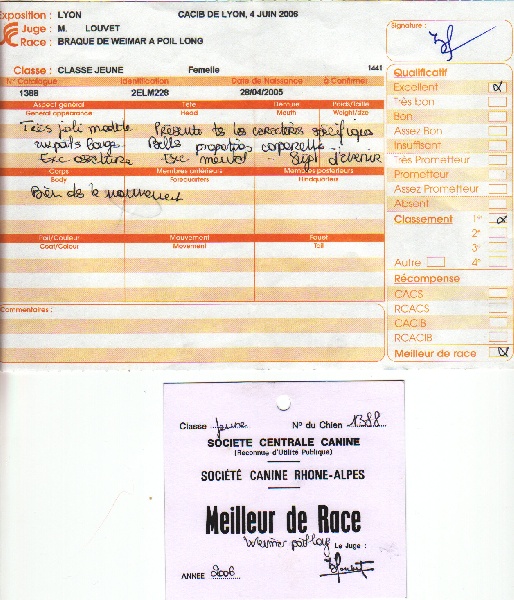 Exposition : LYON CACIB DE LYON, 4 JUIN 2006
Signature :
Juge : M. LOUVET
Race : BRAQUE DE WEIMAR A POIL LONG
Classe : CLASSE JEUNE Femelle 1441
N° Catalogue Identification Date de Naissance à Confirmer
1388 2ELM228 28/04/2005
Aspect général Tête Denture Poids/Taille
General appearance Head Mouth Weight/size
Très joli modèle Présente ts les caractères spécifiques
Belle proportions corporelles
Exc ossature Exc mental
Corps Membres antérieurs Membres postérieurs
Body Forequarters Hindquarters
Bien ds le mouvement
Poil/Couleur Mouvement Fouet
Coat/Colour Movement Tail
Commentaires :
Qualificatif
Excellent
Très bon
Bon
Assez Bon
Insuffisant
Très Prometteur
Prometteur
Assez Prometteur
Absent
Classement 1er
2e
3e
Autre 4e
Récompense
CACS
RCACS
CACIB
RCACIB
Meilleur de race
Classe Jeune N° du Chien 1388
SOCIETE CENTRALE CANINE
(Reconnue d'Utilité Publique)
SOCIÉTÉ CANINE RHONE-ALPES
Meilleur de Race
Weimar poil long Le Juge :
ANNÉE 2006